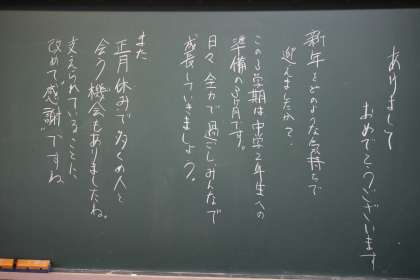 ありまして
おめでとうございます
新年をどのような気持ちで
迎えましたか？
この3学期は中学2年生への
準備の3ヶ月です。
日々全力で過ごし、みんなで
成長していきましょう。
また
正月休みで多くの人と
会う機会もありましたね。
支えられていることに、
改めて“感謝”ですね